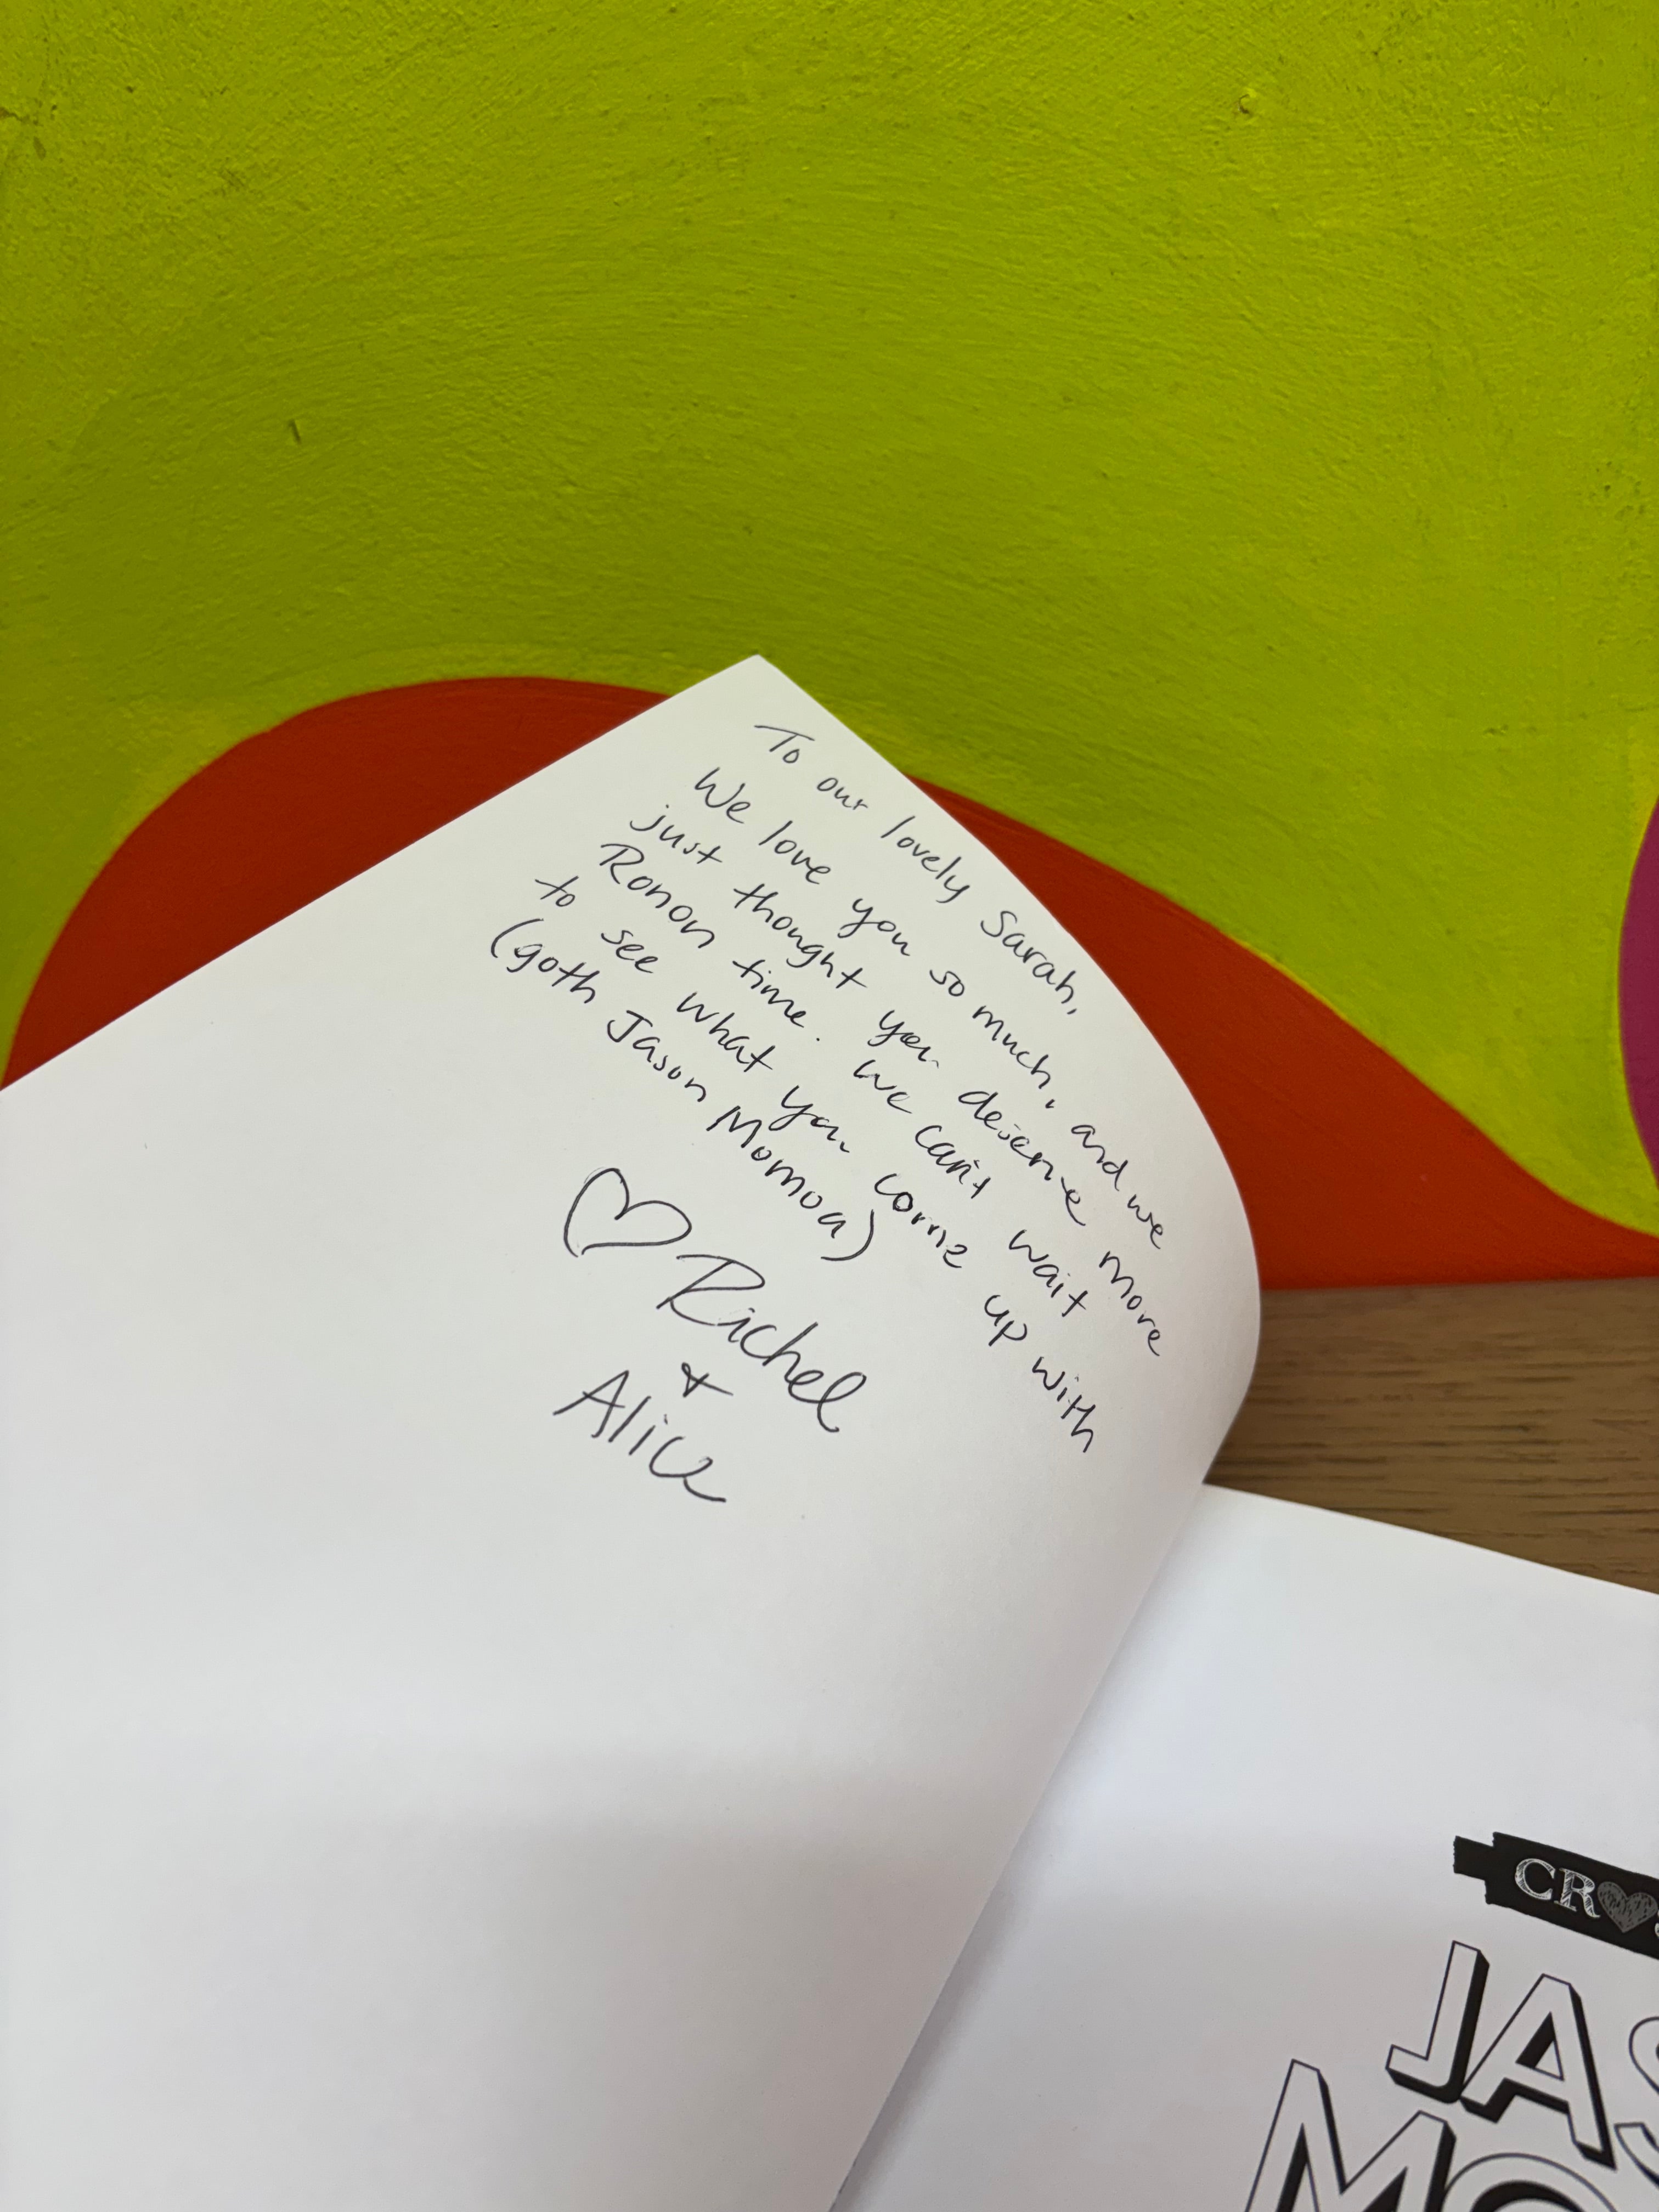 To our lovely Sarah,
We love you so much, and we
just thought you deserve more
Ronon time. We can't wait
to see what you come up with
(goth Jason Momoa)
♡ Richel
+
Alice
CR♥
JAS
MO